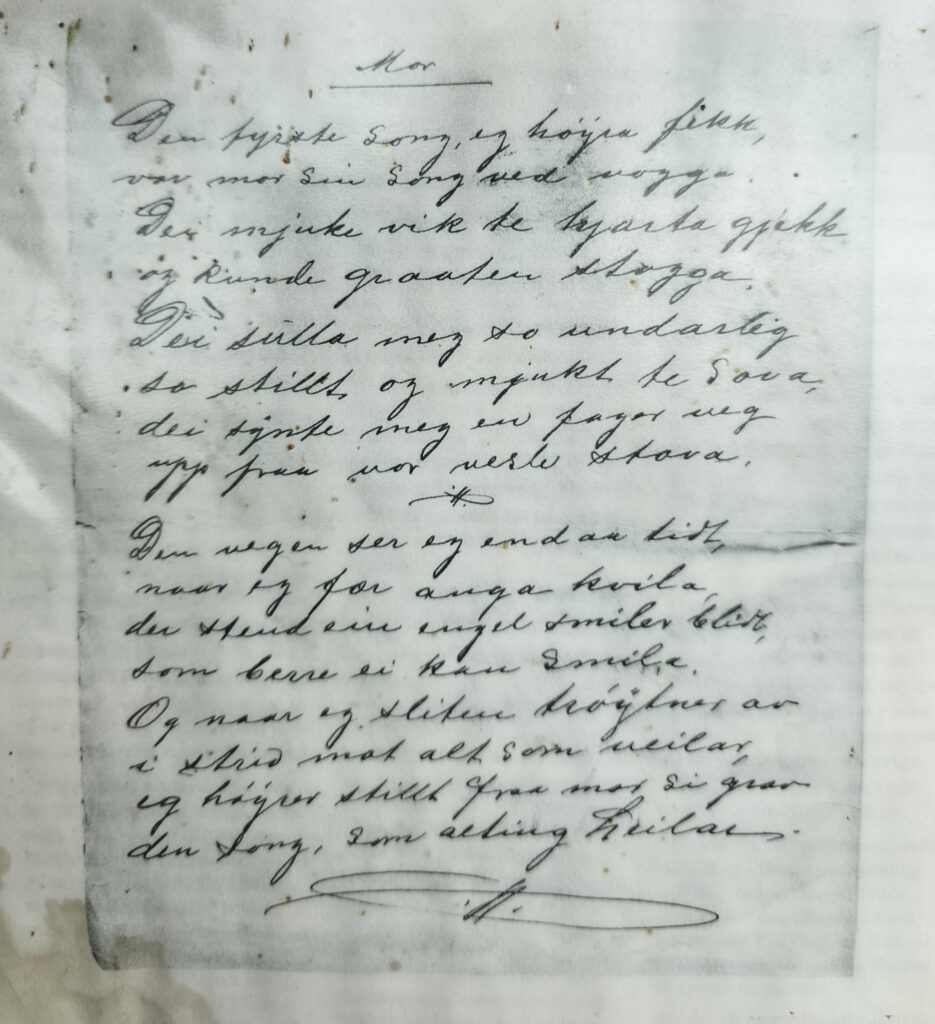 Mor
Den fyrste song, eg höyra fekk,
var mor sin song ved vogga.
Dei mjuke vik te hjarta gjekk
og kunde graaten stogga.
Dei sulla meg so undarleg
so stillt og mjukt te sova,
dei synte meg en fager veg
upp fraa vor vesle stova.
Den vegen ser eg endaa tidt,
naar eg fær auga kvila,
der stend ein engel smiler blidt,
som berre ei kan smila.
Og naar eg sliten tröytner av
i strid mot alt som veilar,
eg höyrer stillt fraa mor si grav
den song, som alting heilar.